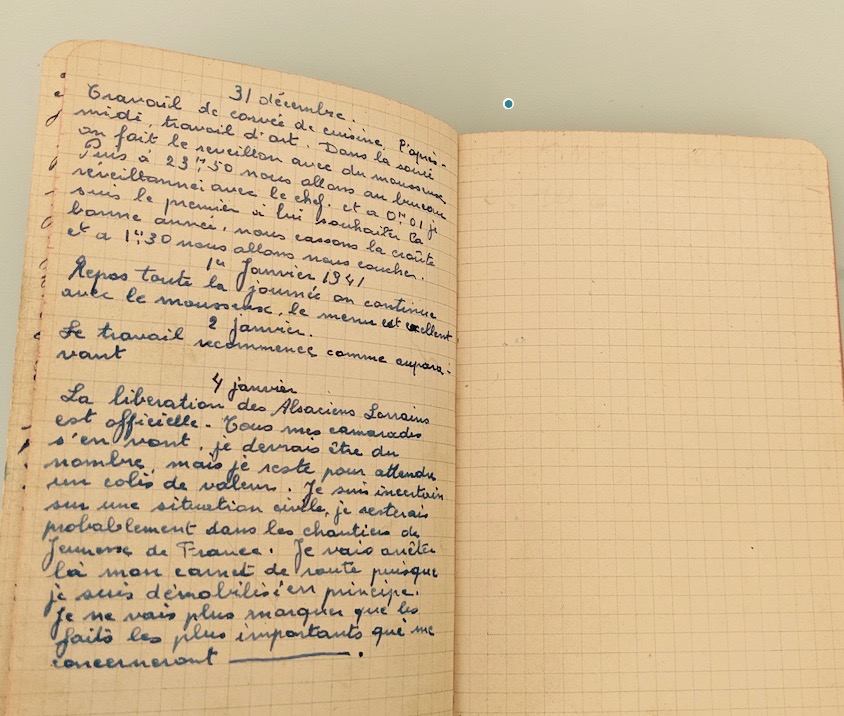 31 décembre.
Travail de corvée de cuisine, l'après-
midi, travail d'art. Dans la soirée
on fait le reveillon avec du mousseux
Puis à 23H50 nous allons au bureau
réveillonner avec le chef. et à 0H01 je
suis le premier à lui souhaiter la
bonne année, nous cassons la croûte
et a 1H30 nous allons nous coucher.
1er Janvier 1941
Repos toute la journée on continue
avec le mousseux, le menu est excellent
2 janvier.
Le travail recommence comme aupara-
vant
4 janvier
La libération des Alsaciens Lorrains
est officielle. Tous mes camarades
s'en vont, je devrais être du
nombre, mais je reste pour attendre
un colis de valeur. Je suis incertain
sur une situation civile, je resterais
probablement dans les chantiers de
Jeunesse de France. Je vais arrêter
là mon carnet de route puisque
je suis démobilisé en principe.
Je ne vais plus marquer que les
faits les plus importants qui me
concerneront ———.